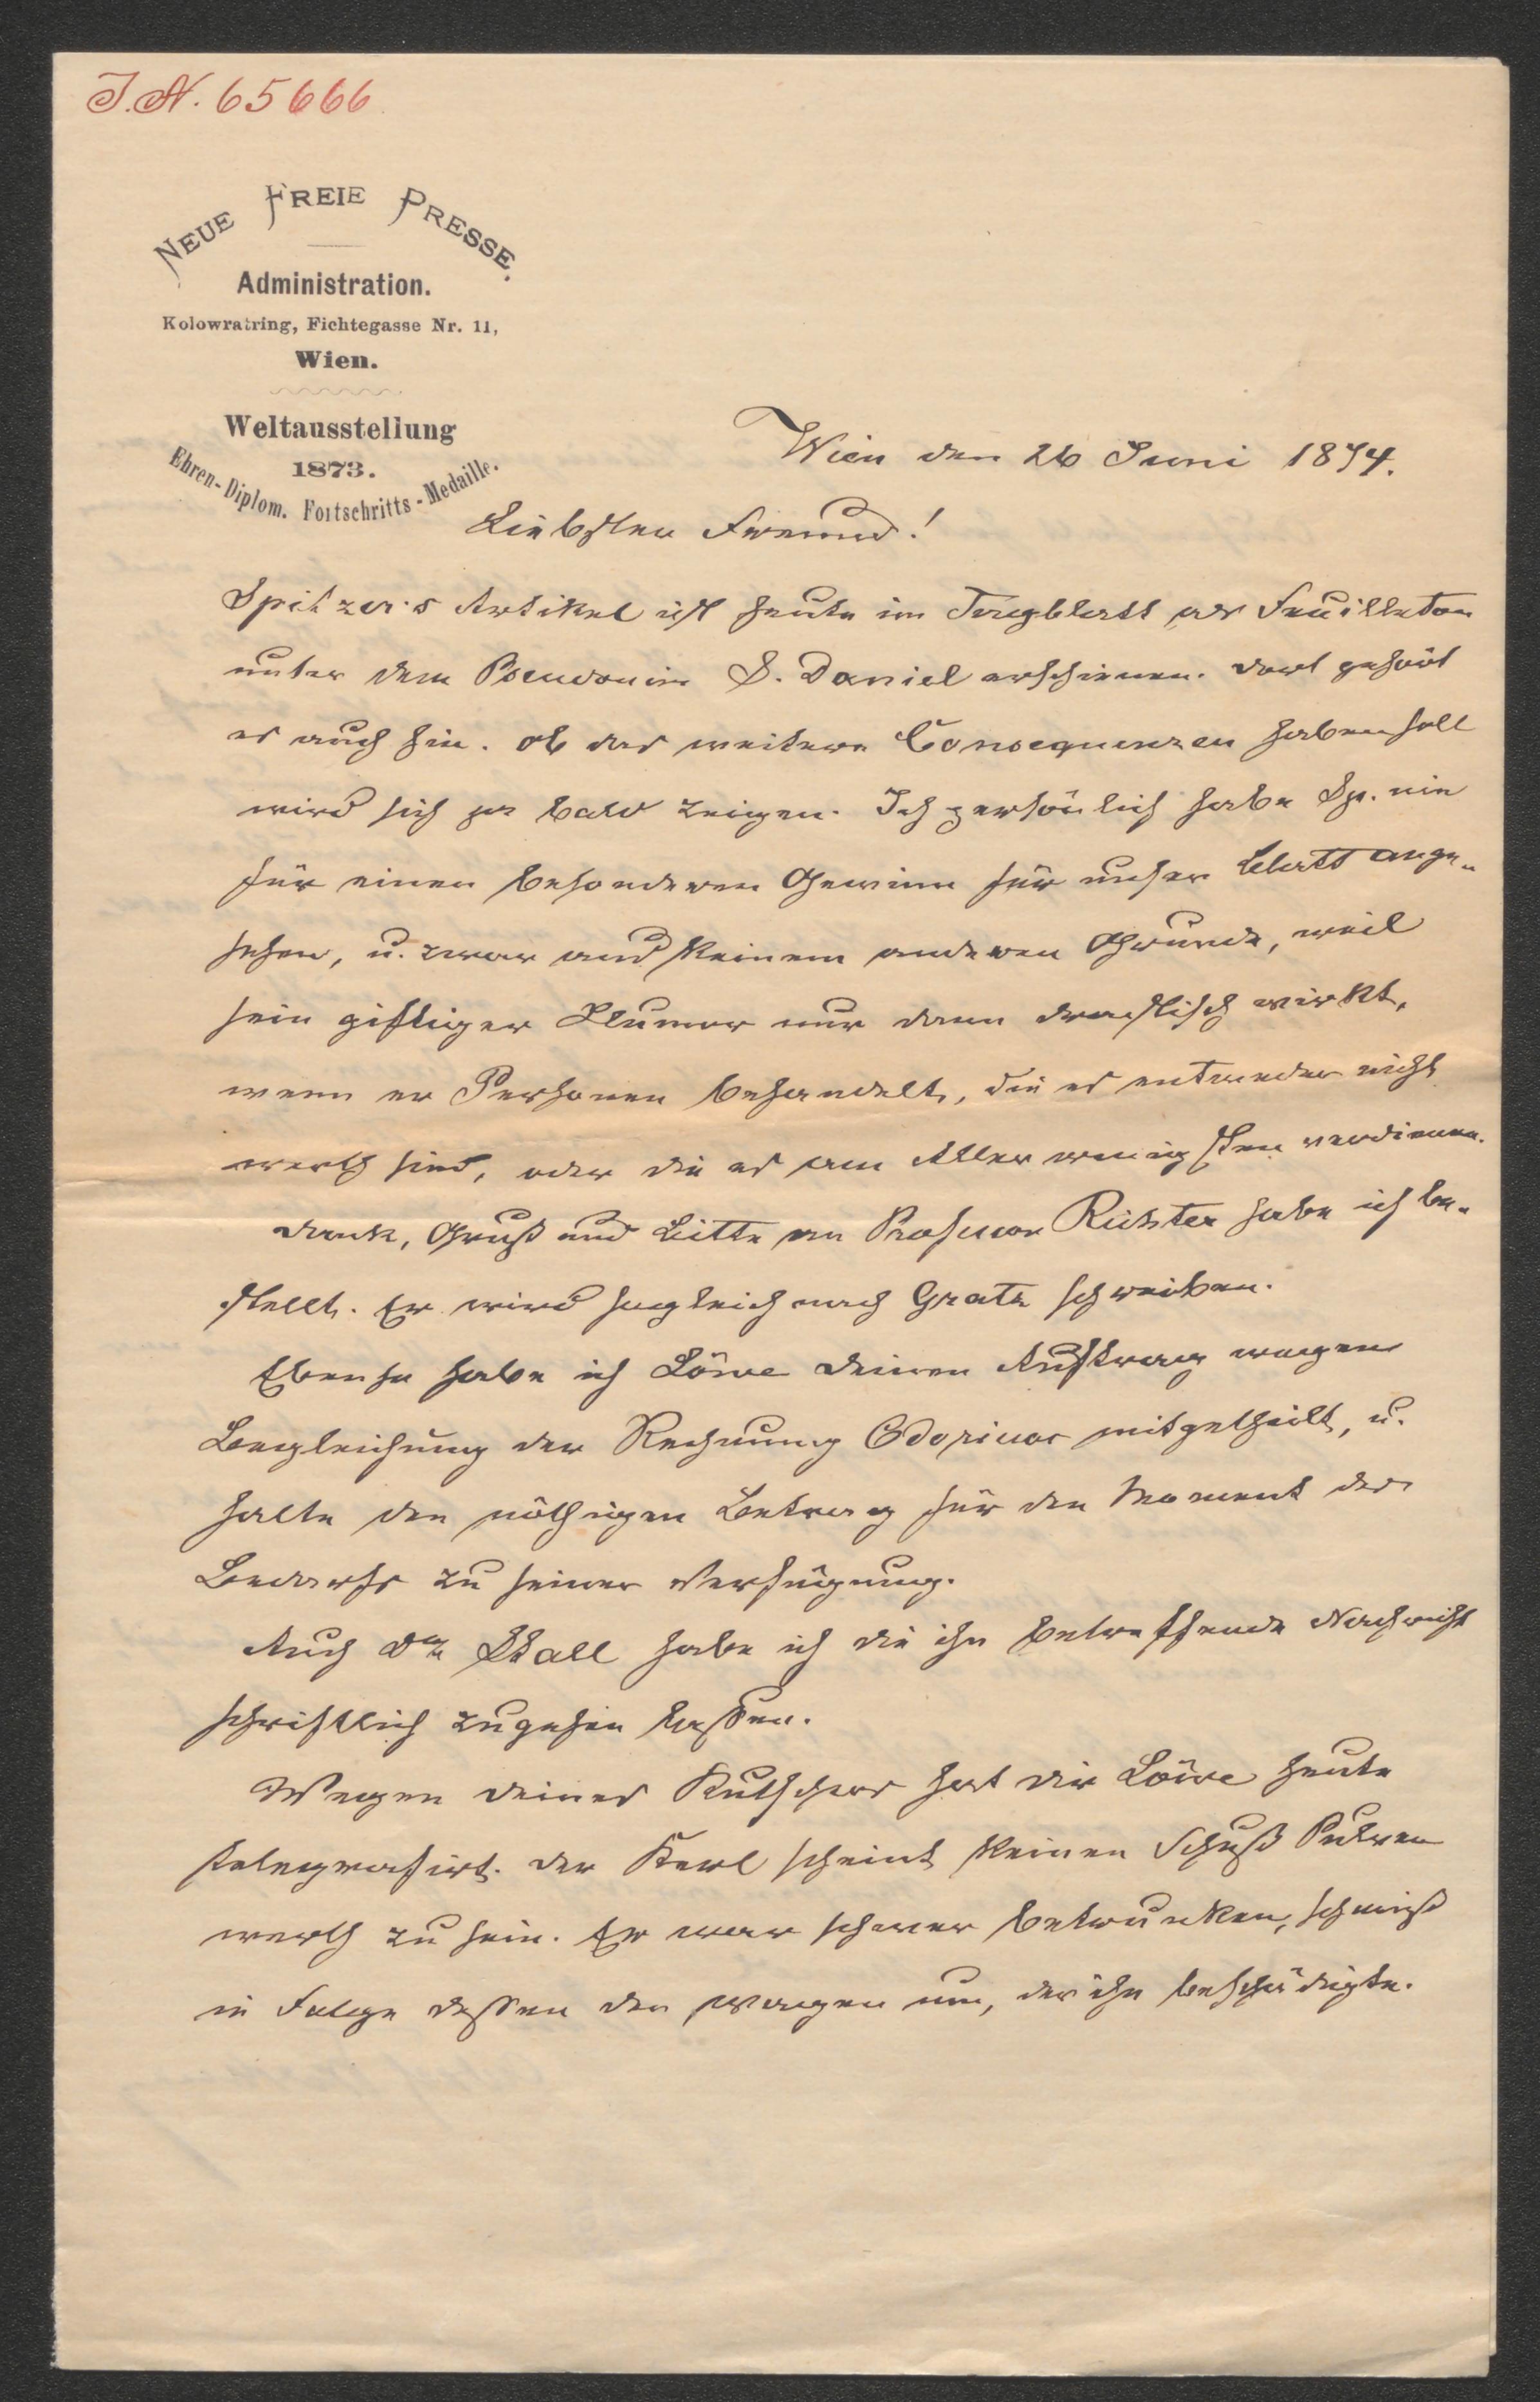 J.N. 65666
NEUE FREIE PRESSE.
Administration.
Kolowratring, Fichtegasse Nr. 11,
Wien.
Weltausstellung
1873.
Ehren-Diplom. Fortschritts-Medaille.
Wien den 26 Juni 1874.
Liebster Freund!
Spitzer's Artikel ist heute im Tagblatt als Feuilleton
unter dem Pseudonim S. Daniel erschienen. Dort gehört
es auch hin. Ob das weitere Consequenzen haben soll
wird sich ja bald zeigen. Ich persönlich habe Sp. nie
für einen besonderen Gewinn für unser Blatt ange-
sehen, u. zwar aus keinem anderen Grunde, weil
sein giftiger Humor nur dann drastisch wirkt,
wenn er Personen behandelt, die es entweder nicht
werth sind, oder die es am Allerwenigsten verdienen.
Dank, Gruß und Bitte an Professor Richter habe ich be-
stellt. Er wird sogleich nach Gratz schreiben.
Ebenso habe ich Löwe Deinen Auftrag wegen
Begleichung der Rechnung mitgetheilt, u.
halte den nöthigen Betrag für den Moment des
Bedarfs zu seiner Verfügung.
Auch Dr habe ich die ihn betreffende Nachricht
schriftlich zugehen lassen.
Wegen Deines Kutschers hat Dir Löwe heute
telegrafirt. Der Kerl scheint keinen Schuß Pulver
werth zu sein. Er war schwer betrunken, schmiß
in Folge dessen den Wagen um, der ihn beschädigte.